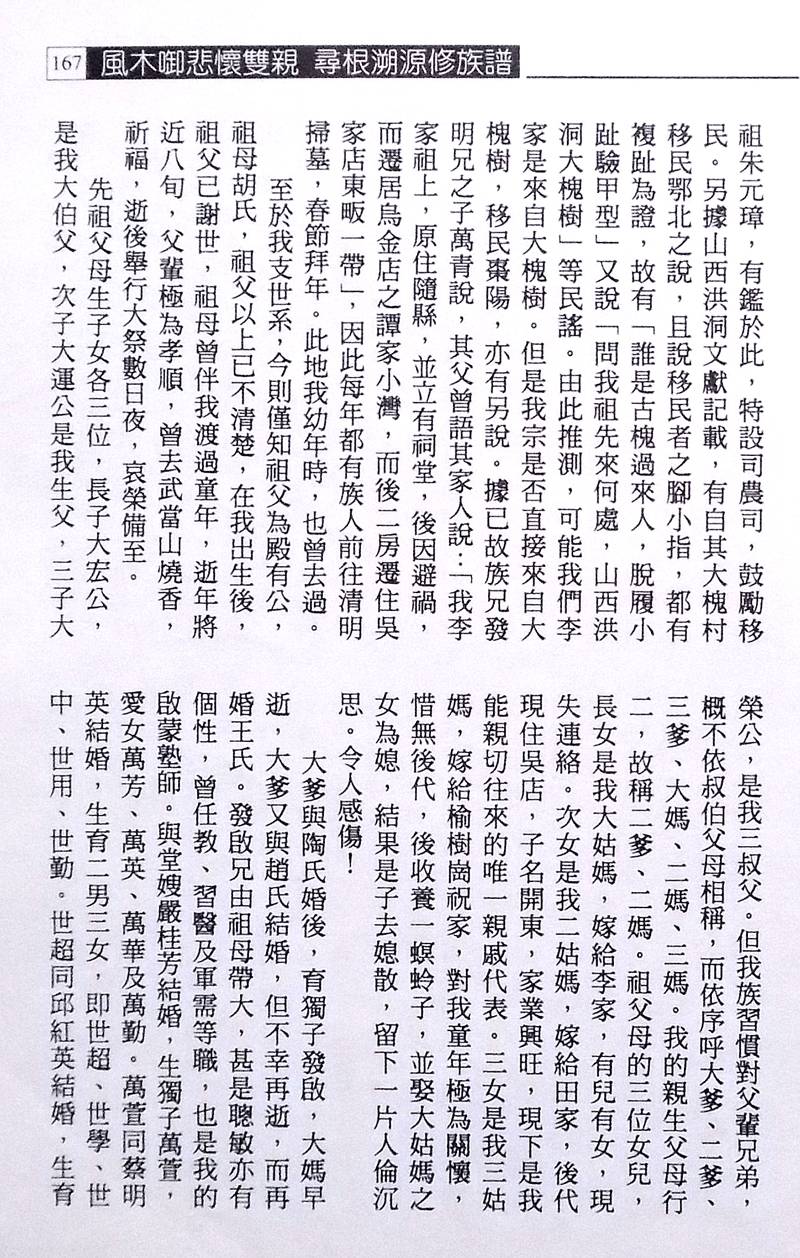 167 風木啣悲懷雙親 尋根溯源修族譜
祖朱元璋，有鑑於此，特設司農司，鼓勵移
民。另據山西洪洞文獻記載，有自其大槐村
移民鄂北之說，且說移民者之腳小指，都有
複趾為證，故有「誰是古槐過來人，脫履小
趾驗甲型」又說「問我祖先來何處，山西洪
洞大槐樹」等民謠。由此推測，可能我們李
家是來自大槐樹。但是我宗是否直接來自大
槐樹，移民棗陽，亦有另說。據已故族兄發
明兄之子萬青說，其父曾語其家人說：「我李
家祖上，原住隨縣，並立有祠堂，後因避禍，
而遷居烏金店之譚家小灣，而後二房遷住吳
家店東畈一帶」，因此每年都有族人前往清明
掃墓，春節拜年。此地我幼年時，也曾去過。
至於我支世系，今則僅知祖父為殿有公，
祖母胡氏，祖父以上已不清楚，在我出生後，
祖父已謝世，祖母曾伴我渡過童年，逝年將
近八旬，父輩極為孝順，曾去武當山燒香，
祈福，逝後舉行大祭數日夜，哀榮備至。
先祖父母生子女各三位，長子大宏公，
是我大伯父，次子大運公是我生父，三子大
榮公，是我三叔父。但我族習慣對父輩兄弟，
概不依叔伯父母相稱，而依序呼大爹、二爹、
三爹、大媽、二媽、三媽。我的親生父母行
二，故稱二爹、二媽。祖父母的三位女兒，
長女是我大姑媽，嫁給李家，有兒有女，現
失連絡。次女是我二姑媽，嫁給田家，後代
現住吳店，子名開東，家業興旺，現下是我
能親切往來的唯一親戚代表。三女是我三姑
媽，嫁給榆樹崗祝家，對我童年極為關懷，
惜無後代，後收養一螟蛉子，並娶大姑媽之
女為媳，結果是子去媳散，留下一片人倫沉
思。令人感傷！
大爹與陶氏婚後，育獨子發啟，大媽早
逝，大爹又與趙氏結婚，但不幸再逝，而再
婚王氏。發啟兄由祖母帶大，甚是聰敏亦有
個性，曾任教、習醫及軍需等職，也是我的
啟蒙塾師。與堂嫂嚴桂芳結婚，生獨子萬萱，
愛女萬芳、萬英、萬華及萬勤。萬萱同蔡明
英結婚，生育二男三女，即世超、世學、世
中、世用、世勤。世超同邱紅英結婚，生育